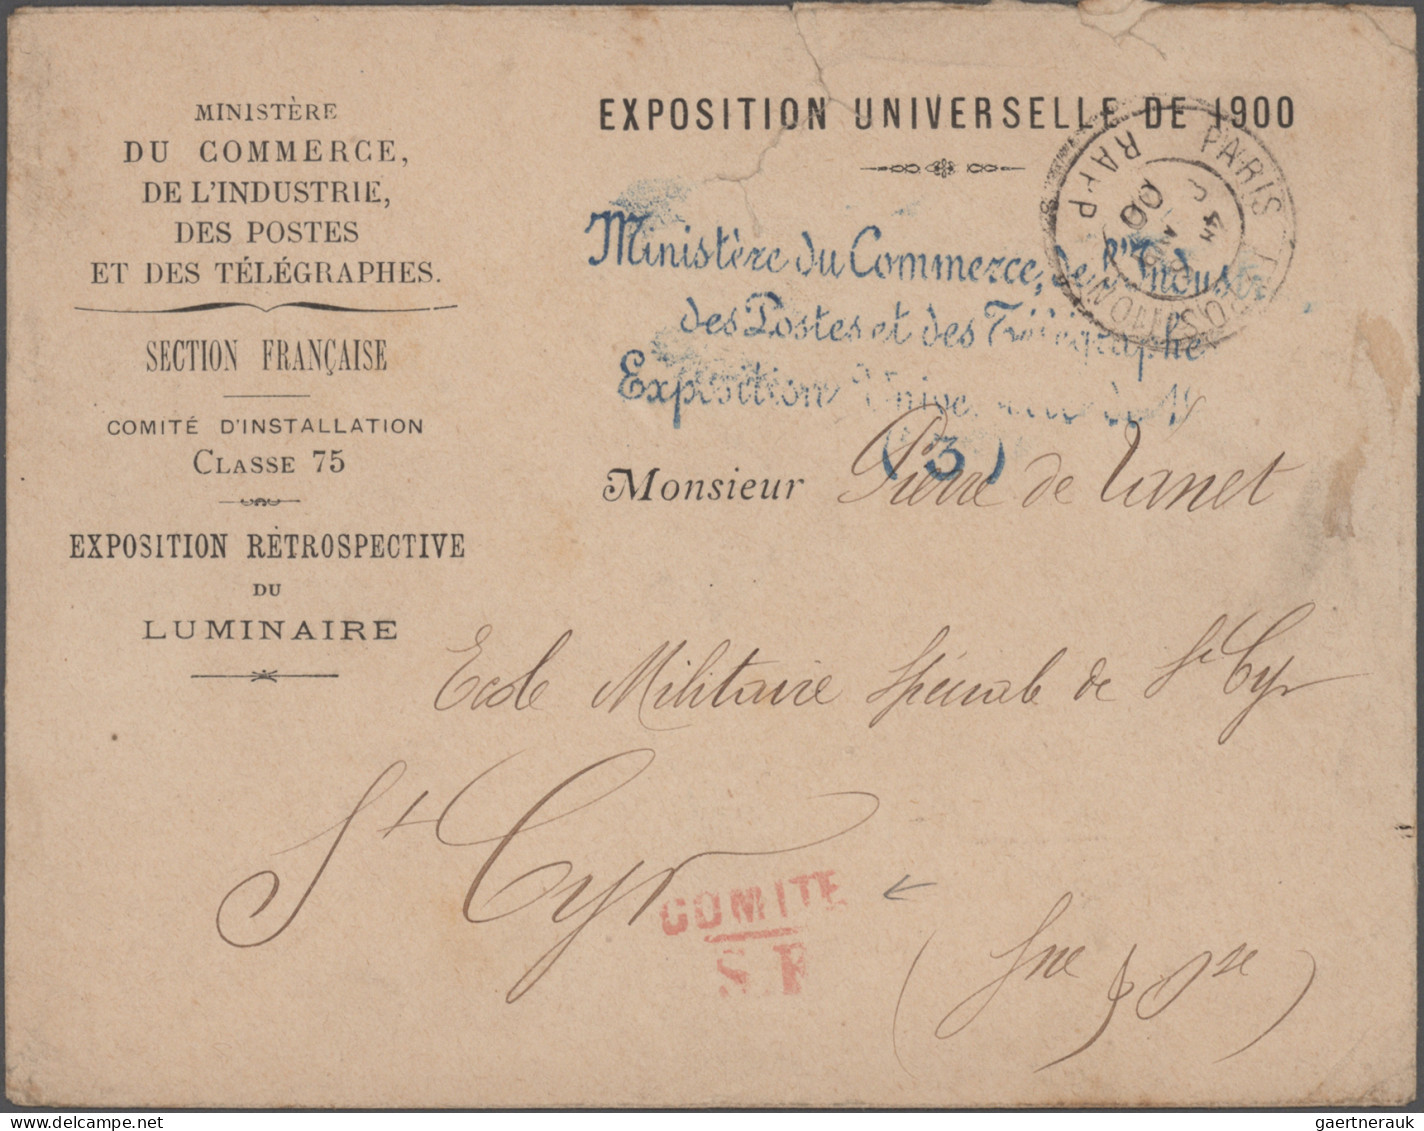 MINISTÈRE
DU COMMERCE,
DE L'INDUSTRIE,
DES POSTES
ET DES TÉLÉGRAPHES.
SECTION FRANÇAISE
COMITÉ D'INSTALLATION
CLASSE 75
EXPOSITION RÉTROSPECTIVE
DU
LUMINAIRE
EXPOSITION UNIVERSELLE DE 1900
PARIS EXPOSITION
RAPP
00
Ministère du Commerce, de l'Industr
des Postes et des Télégraphe
Exposition Unive
(3)
Monsieur Pierre de
Ecole Militaire Spéciale de St Cyr
St Cyr
COMITE
S.F
(Sne & Oise)
gaertnerauk